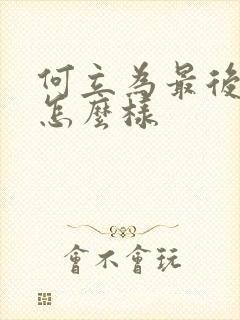 何立為最後
怎麼樣
會不會玩